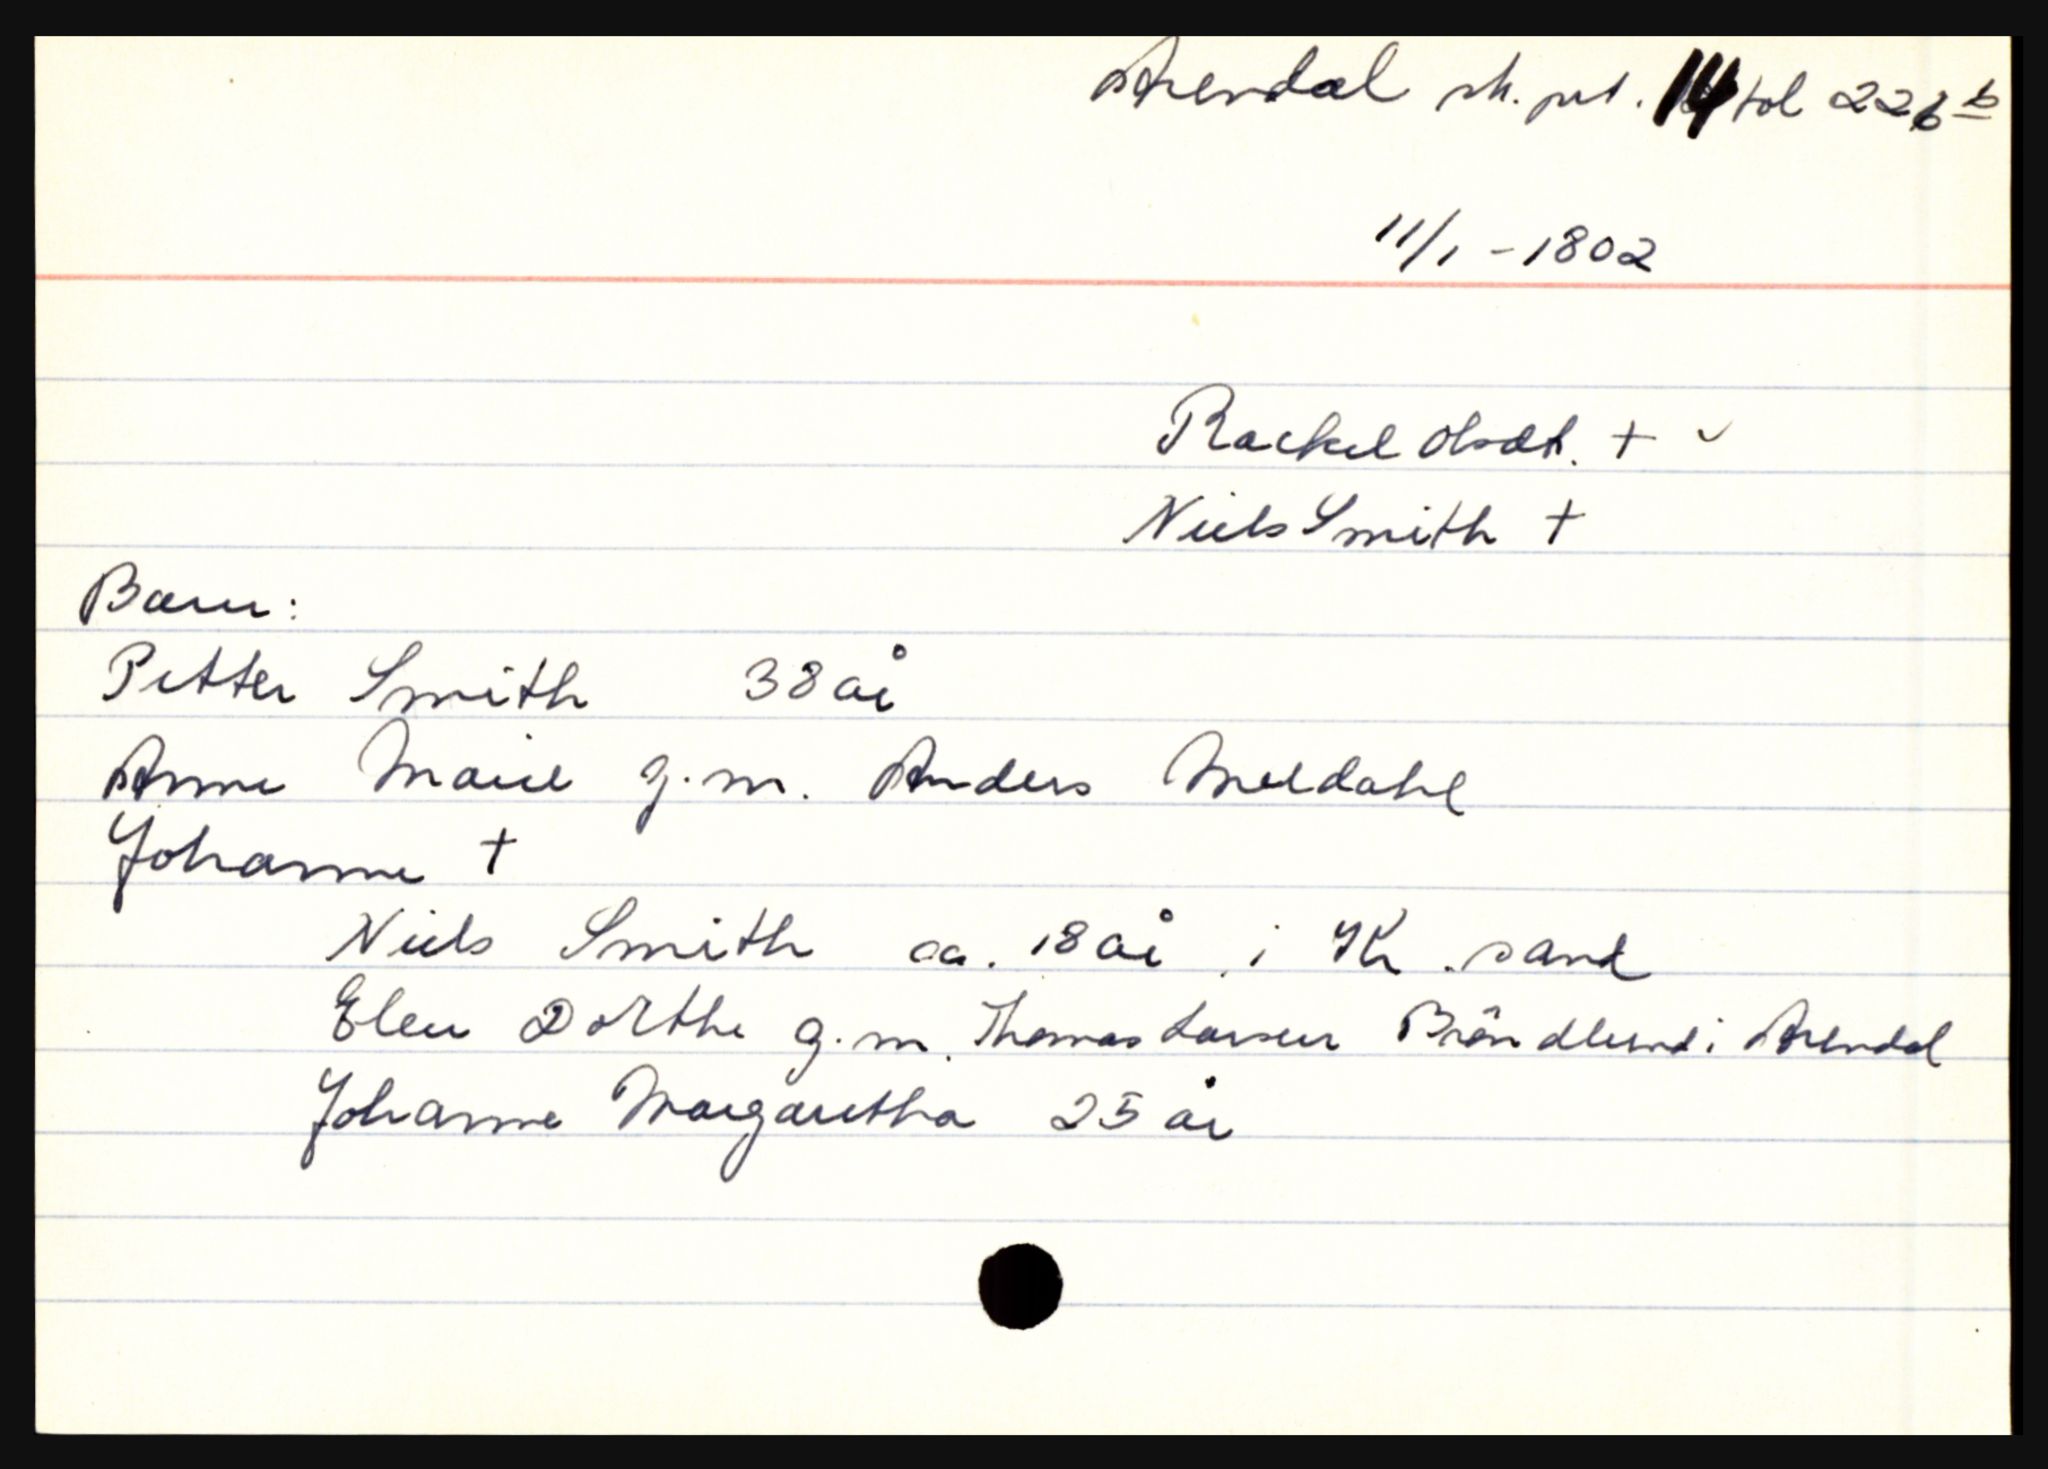 Arendal sk. prt. 14 fol 226 b
11/1 - 1802
Rachel Olsdt. + ✓
Niels Smith +
Barn:
Petter Smith 38 år
Anne Marie g.m. Anders Meldahl
Johanne +
Niels Smith ca. 18 år i Kr. sand
Elen Dorthe g.m. Thomas Larsen Bröndlund i Arendal
Johanne Margaretha 25 år